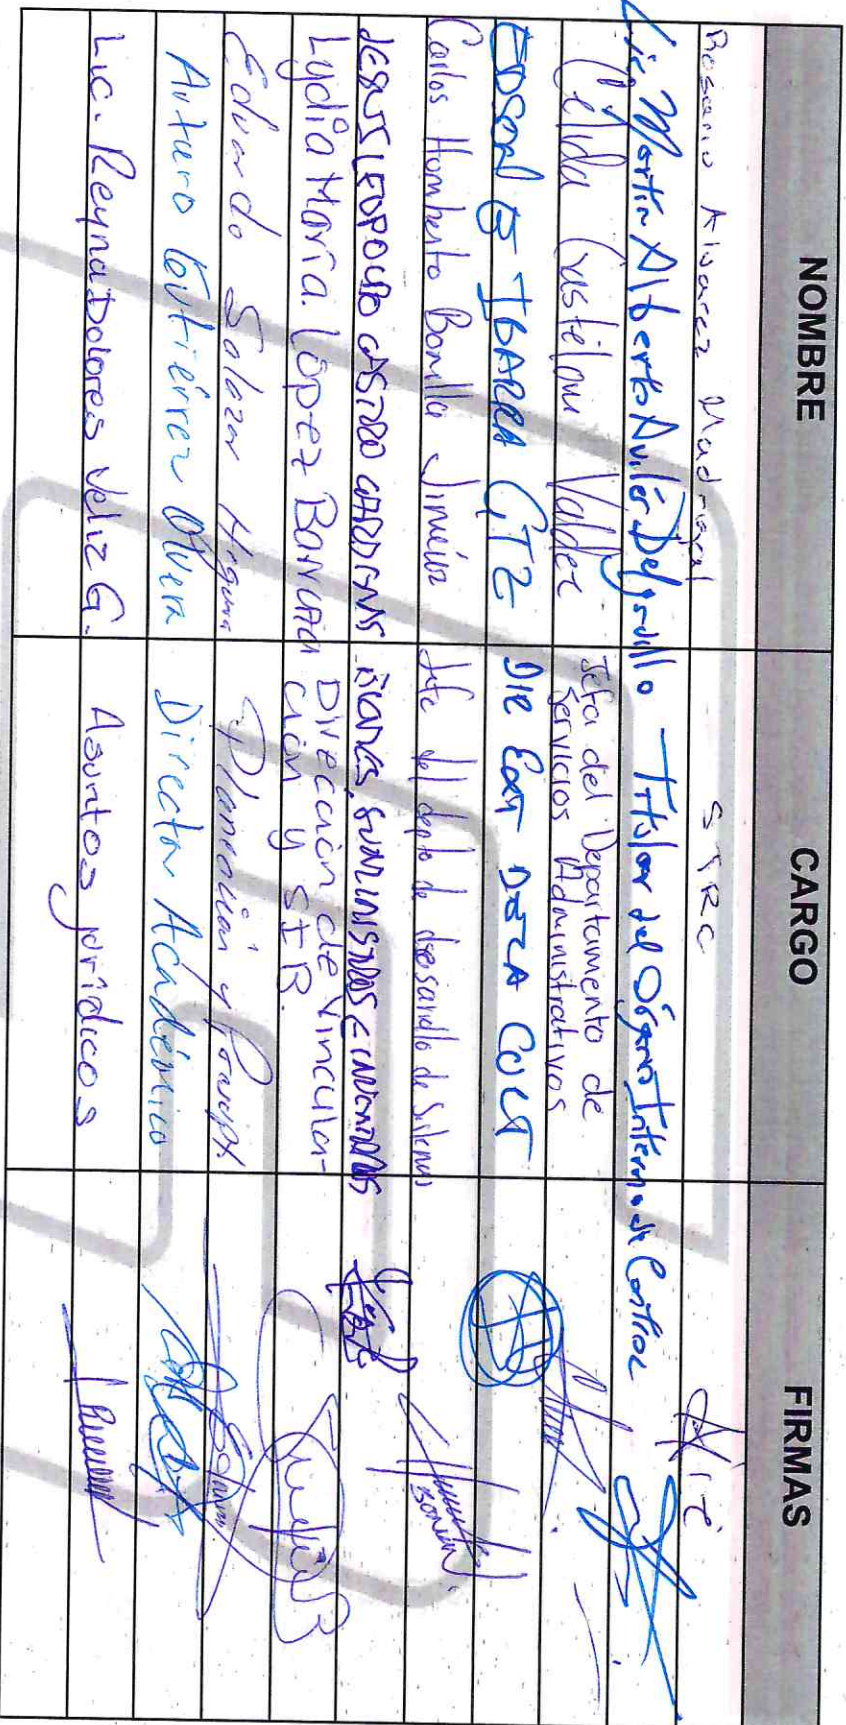 NOMBRE CARGO FIRMAS
Rosario Alvarez Madrigal STRC
Lic. Martín Alberto Avilés Delgadillo Titular del Órgano Interno de Control
Célida Gastélum Valdez Jefa del Departamento de
Servicios Administrativos
EDSON E IBARRA GTZ DIR EXT DE LA CULT
Carlos Humberto Bonilla Jiménez Jefe del depto de desarrollo de Sistemas
JESUS LEOPOLDO CASTRO CARDENAS BIENES, SUMINISTROS E INVENTARIOS
Lydia María López Barraza Dirección de Vincula-
ción y SIB.
Eduardo Salazar Higuera Planeación y
Arturo Gutiérrez Olvera Director Académico
Lic. Reyna Dolores Veliz G. Asuntos jurídicos